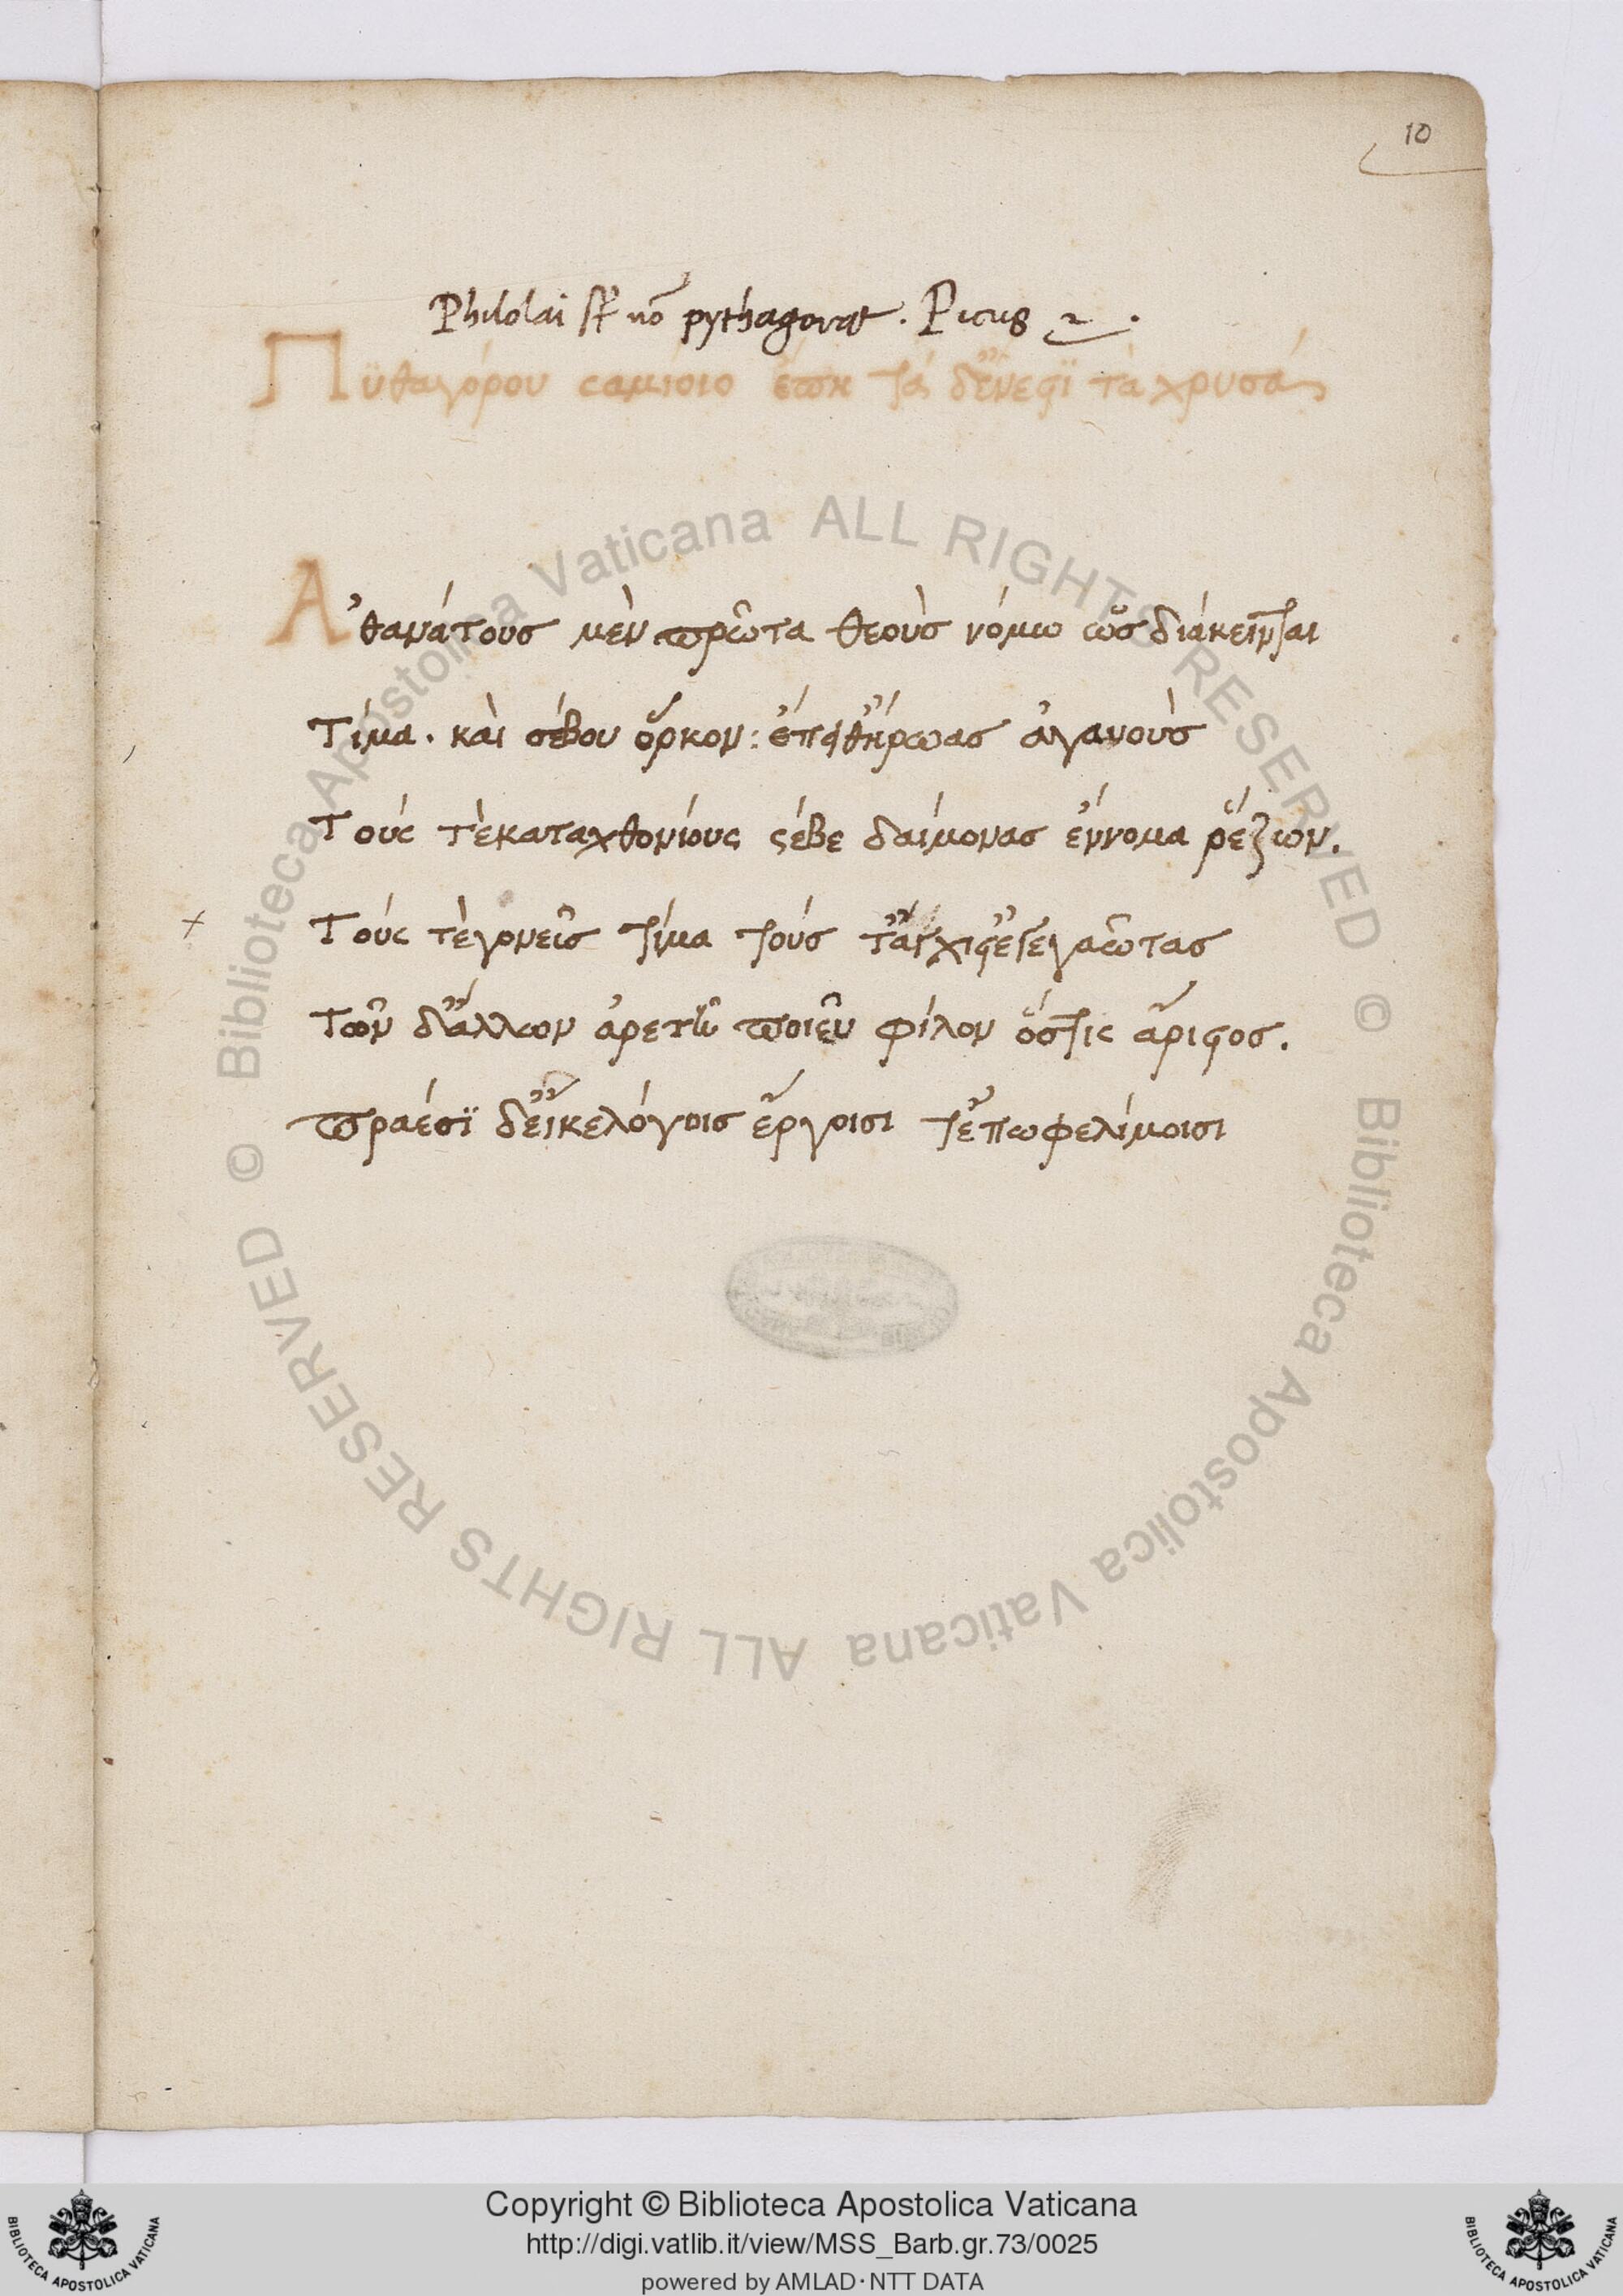 10
Philolai st nō pythagorae. Picus
Πϋθαγόρου σαμίοιο ἔπη τά δ' ἔνεστϊ τὰ χρυσά
Ἀθανάτους μὲν πρῶτα θεοὺς νόμω ὧς διάκεινται
Τίμα. καὶ σέβου ὅρκον: ἔπειθ' ἥρωας ἀγανοὺς
Τούς τὲ καταχθονίους σέβε δαίμονας ἔννομα ῥέζων.
Τούς τὲ γονεῖς τίμα τούς τ' ἄγχιστ' ἐγγεγαῶτας
Τῶν δ' ἄλλων ἀρετῇ ποιεῦ φίλον ὅστις ἄριστος.
πραέσϊ δ' εἶκε λόγοις ἔργοισι τ' ἐπωφελίμοισι
© Biblioteca Apostolica Vaticana ALL RIGHTS RESERVED
© Biblioteca Apostolica Vaticana ALL RIGHTS RESERVED
Copyright © Biblioteca Apostolica Vaticana
http://digi.vatlib.it/view/MSS_Barb.gr.73/0025
powered by AMLAD·NTT DATA
BIBLIOTECA APOSTOLICA VATICANA
BIBLIOTECA APOSTOLICA VATICANA